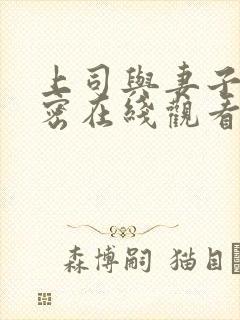 上司與妻子
密在綫觀看
森博嗣 猫目